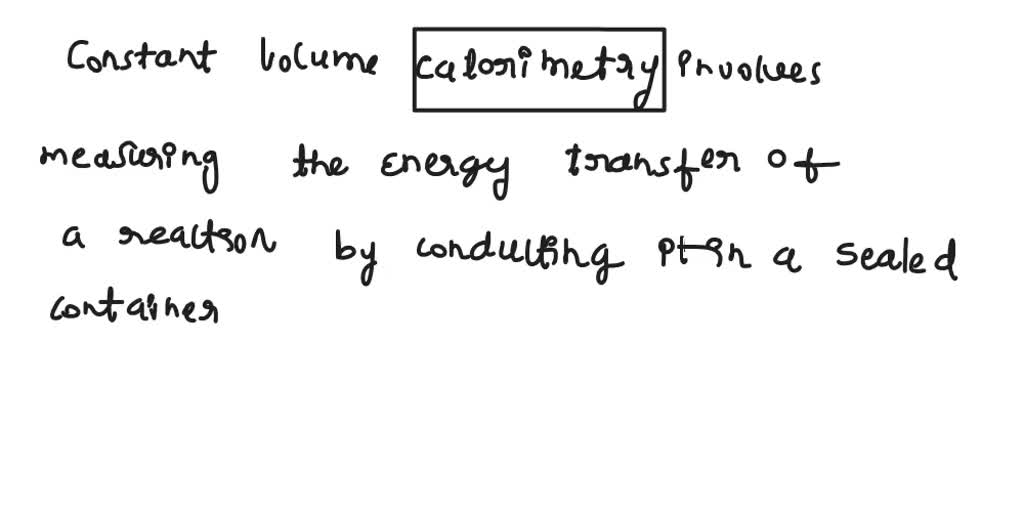 Constant Volume calorimetry involves
measuring the energy transfer of
a reaction by conducting it in a sealed
container